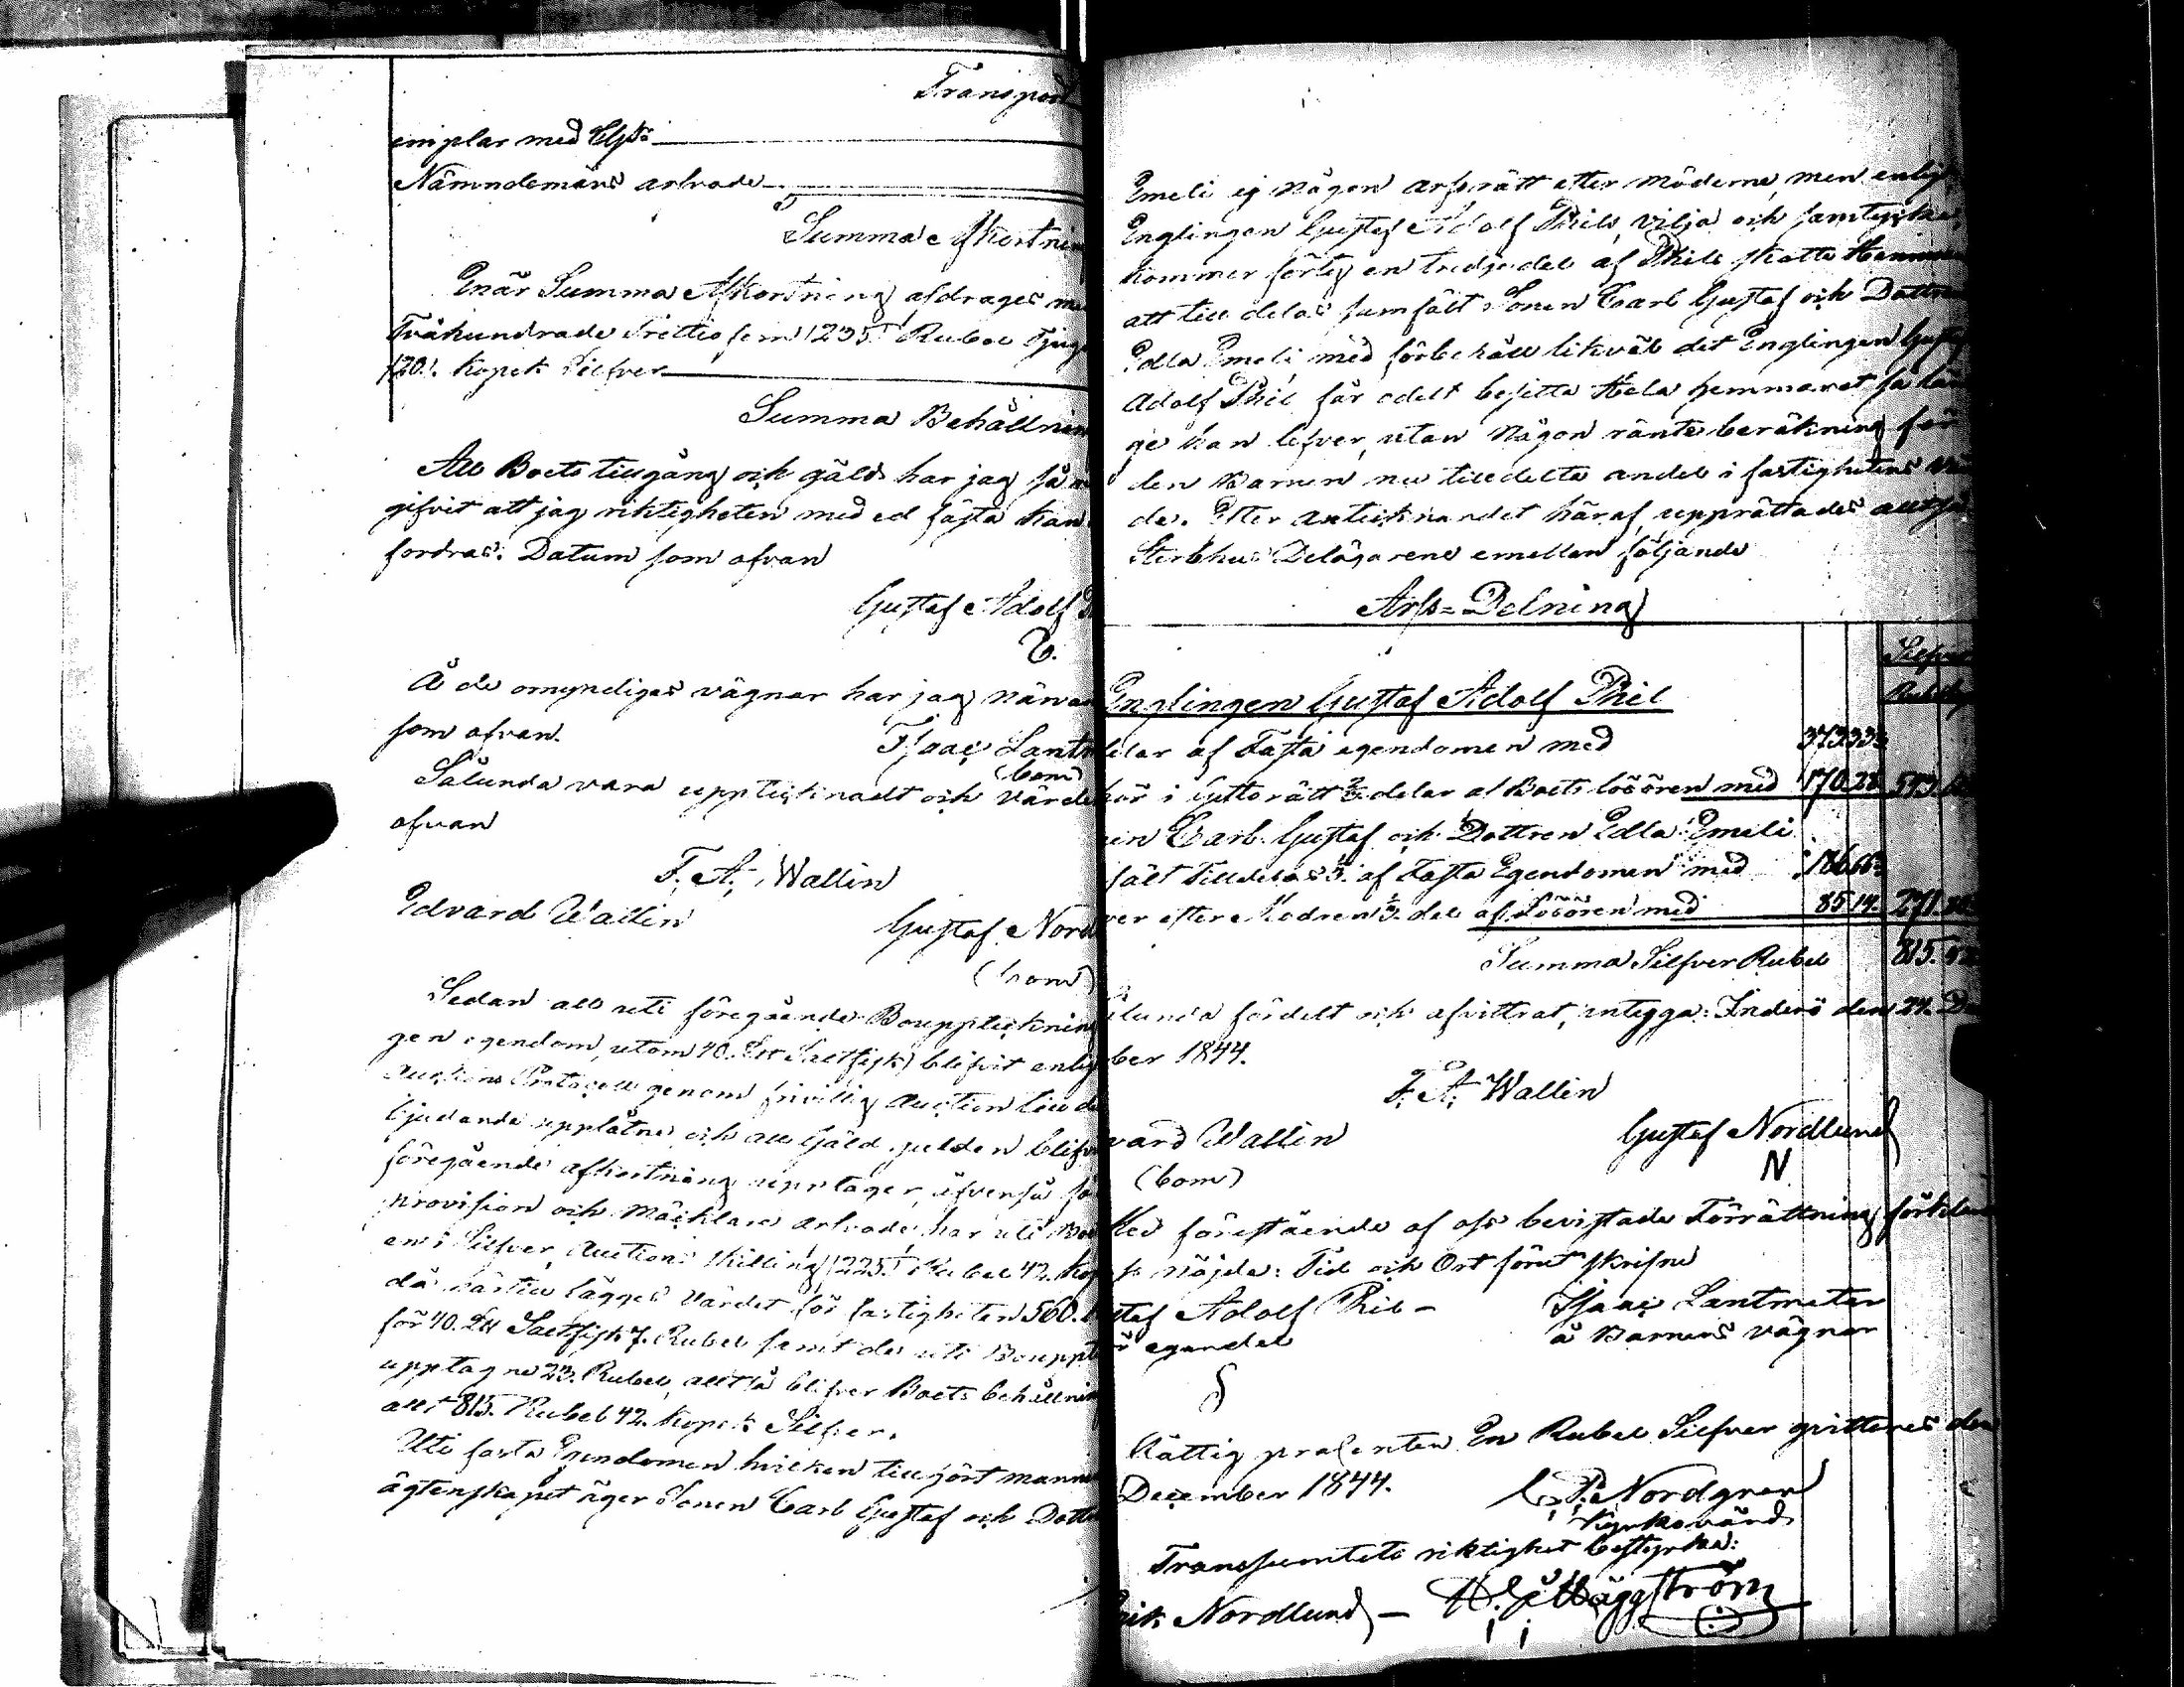 Transport
emplar med
Nämndemäns arfvode
Summa Afkortnin
Enär Summa Afkortning afdrages me
Tvåhundrade Trettiofem /235./ Rubel Tjug
/20./. kopek Silfver
Summa Behållnin
All Boets tillgång och gäld har jag så
gifvit att jag riktigheten med ed fästa kan
fordras. Datum som ofvan
Gustaf Adolf
Å de omyndigas vägnar har jag närva
som ofvan.
Isaac Lantm
(bom)
Sålunda vara upptecknadt och värde
ofvan
F. A. Wallin
Edvard Wallin
Gustaf Nord
(bom)
Sedan all uti föregående Bouppteckning
gen egendom, utom 40. Saltfisk) blifvit enlig
Auctions Protocoll genom frivillig Auction
bjudande upplåtne och all Gäld gulden blifv
föregående afkortning upptager, äfvenså
provision och Mäcklare arfvode har uti Bo
en i Silfver, Auctions skilling /225./ Rubel 42. kop
då härtill lägges Värdet för fastigheten 560.
för 40. Saltfisk 7. Rubel samt de uti Bouppt
upptagne 23. Rubel, alltså blifver Boets behållnin
allt 815. Rubel 42. kopek Silfver.
Uti fasta Egendomen hvilken tillhört mannen
ägtenskapet äger Sonen Carl Gustaf och Dott
Emeli ej någon arfsrätt efter möderne, men enlig
Englingen Gustaf Adolf Phils vilja och samtycke,
kommer förty en tredjedel af Phils skatte Hemman
att tilldelas samfält Sonen Carl Gustaf och Dottren
Edla Emeli, med förbehåll likväl det Englingen Gustaf
Adolf Phil får odelt besitta Hela hemmanet så län
ge han lefver, utan någon ränteberäkning för
den Barnen nu tilldelta andel i fastighetens vär
de. Efter antecknandet häraf, upprättades alltså
Sterbhus Delägarene emellan följande
Arfs-Delning
Silfver
Englingen Gustaf Adolf Phil
delar af Fasta egendomen med 373 33⅓
har i Giftorätt ⅔ delar af Boets lösören med 170.28. 543.
en Carl Gustaf och Dottren Edla Emeli
fält Tilldelas ⅓. af Fasta Egendomen med 186.66⅔
ver efter Modren ⅓. del af Lösören med 85.14. 271.
Summa Silfver Rubel 815. 42.
ålunda fördelt och afvittrat, intyga. Inderö den 27. De
ber 1844.
F. A. Wallin
vard Wallin
(bom)
Gustaf Nordlund
N
Med förestående af oss bevistade Förrättning förklar
nöjde: Tid och Ort förut skrifne
staf Adolf Phil -
egendel
Isaac Lantmäter
å Barnens vägnar
Fattig procenten En Rubel Silfver qvitteras den
December 1844.
C. P. Nordgren
Kyrkovärd
Transsumtets riktighet bestyrka:
Erik Nordlund - Häggström